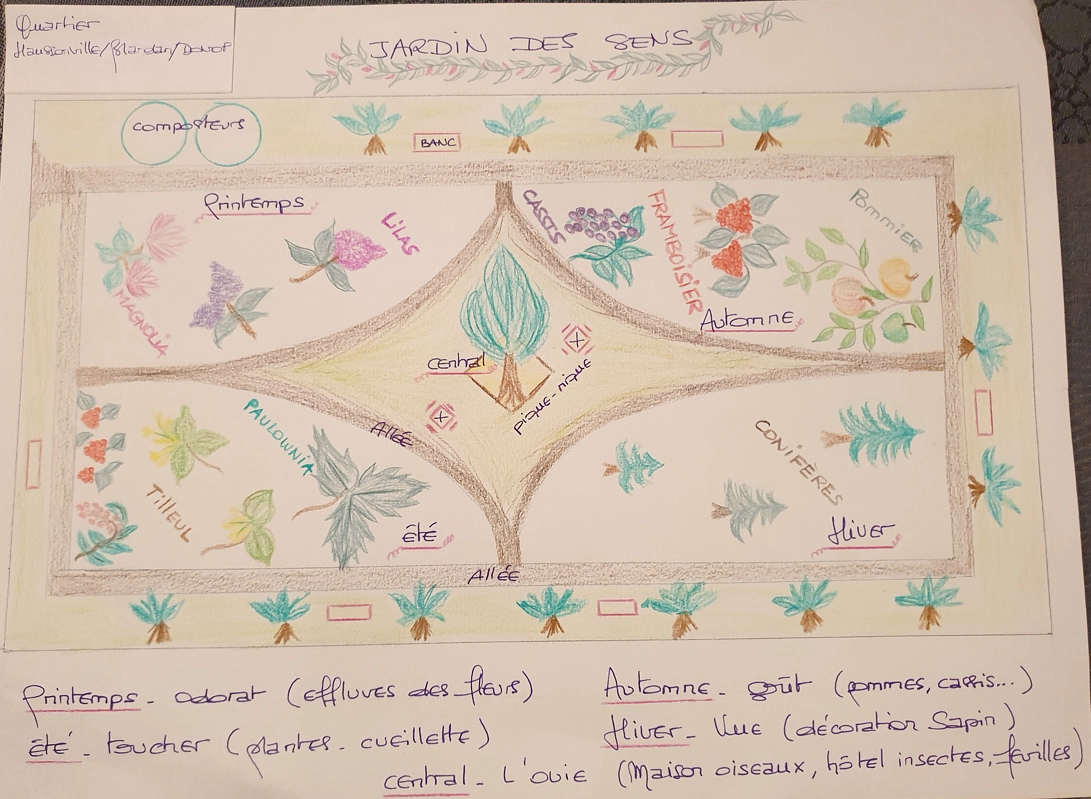 Quartier
Haussonville/Blandan/Donop
JARDIN DES SENS
composteurs
BANC
Printemps
LiLAS
MAGNOLIA
CASSIS
FRAMBOISIER
POMMIER
Automne
central
PiQUE-NiQUE
ALLÉE
PAULOWNIA
TiLLEUL
été
CONIFÈRES
Hiver
ALLÉE
Printemps - odorat (effluves des fleurs)
Automne - goût (pommes, cassis...)
été - toucher (plantes - cueillette)
Hiver - Vue (décoration Sapin)
central - L'ouie (Maison oiseaux, hôtel insectes, feuilles)